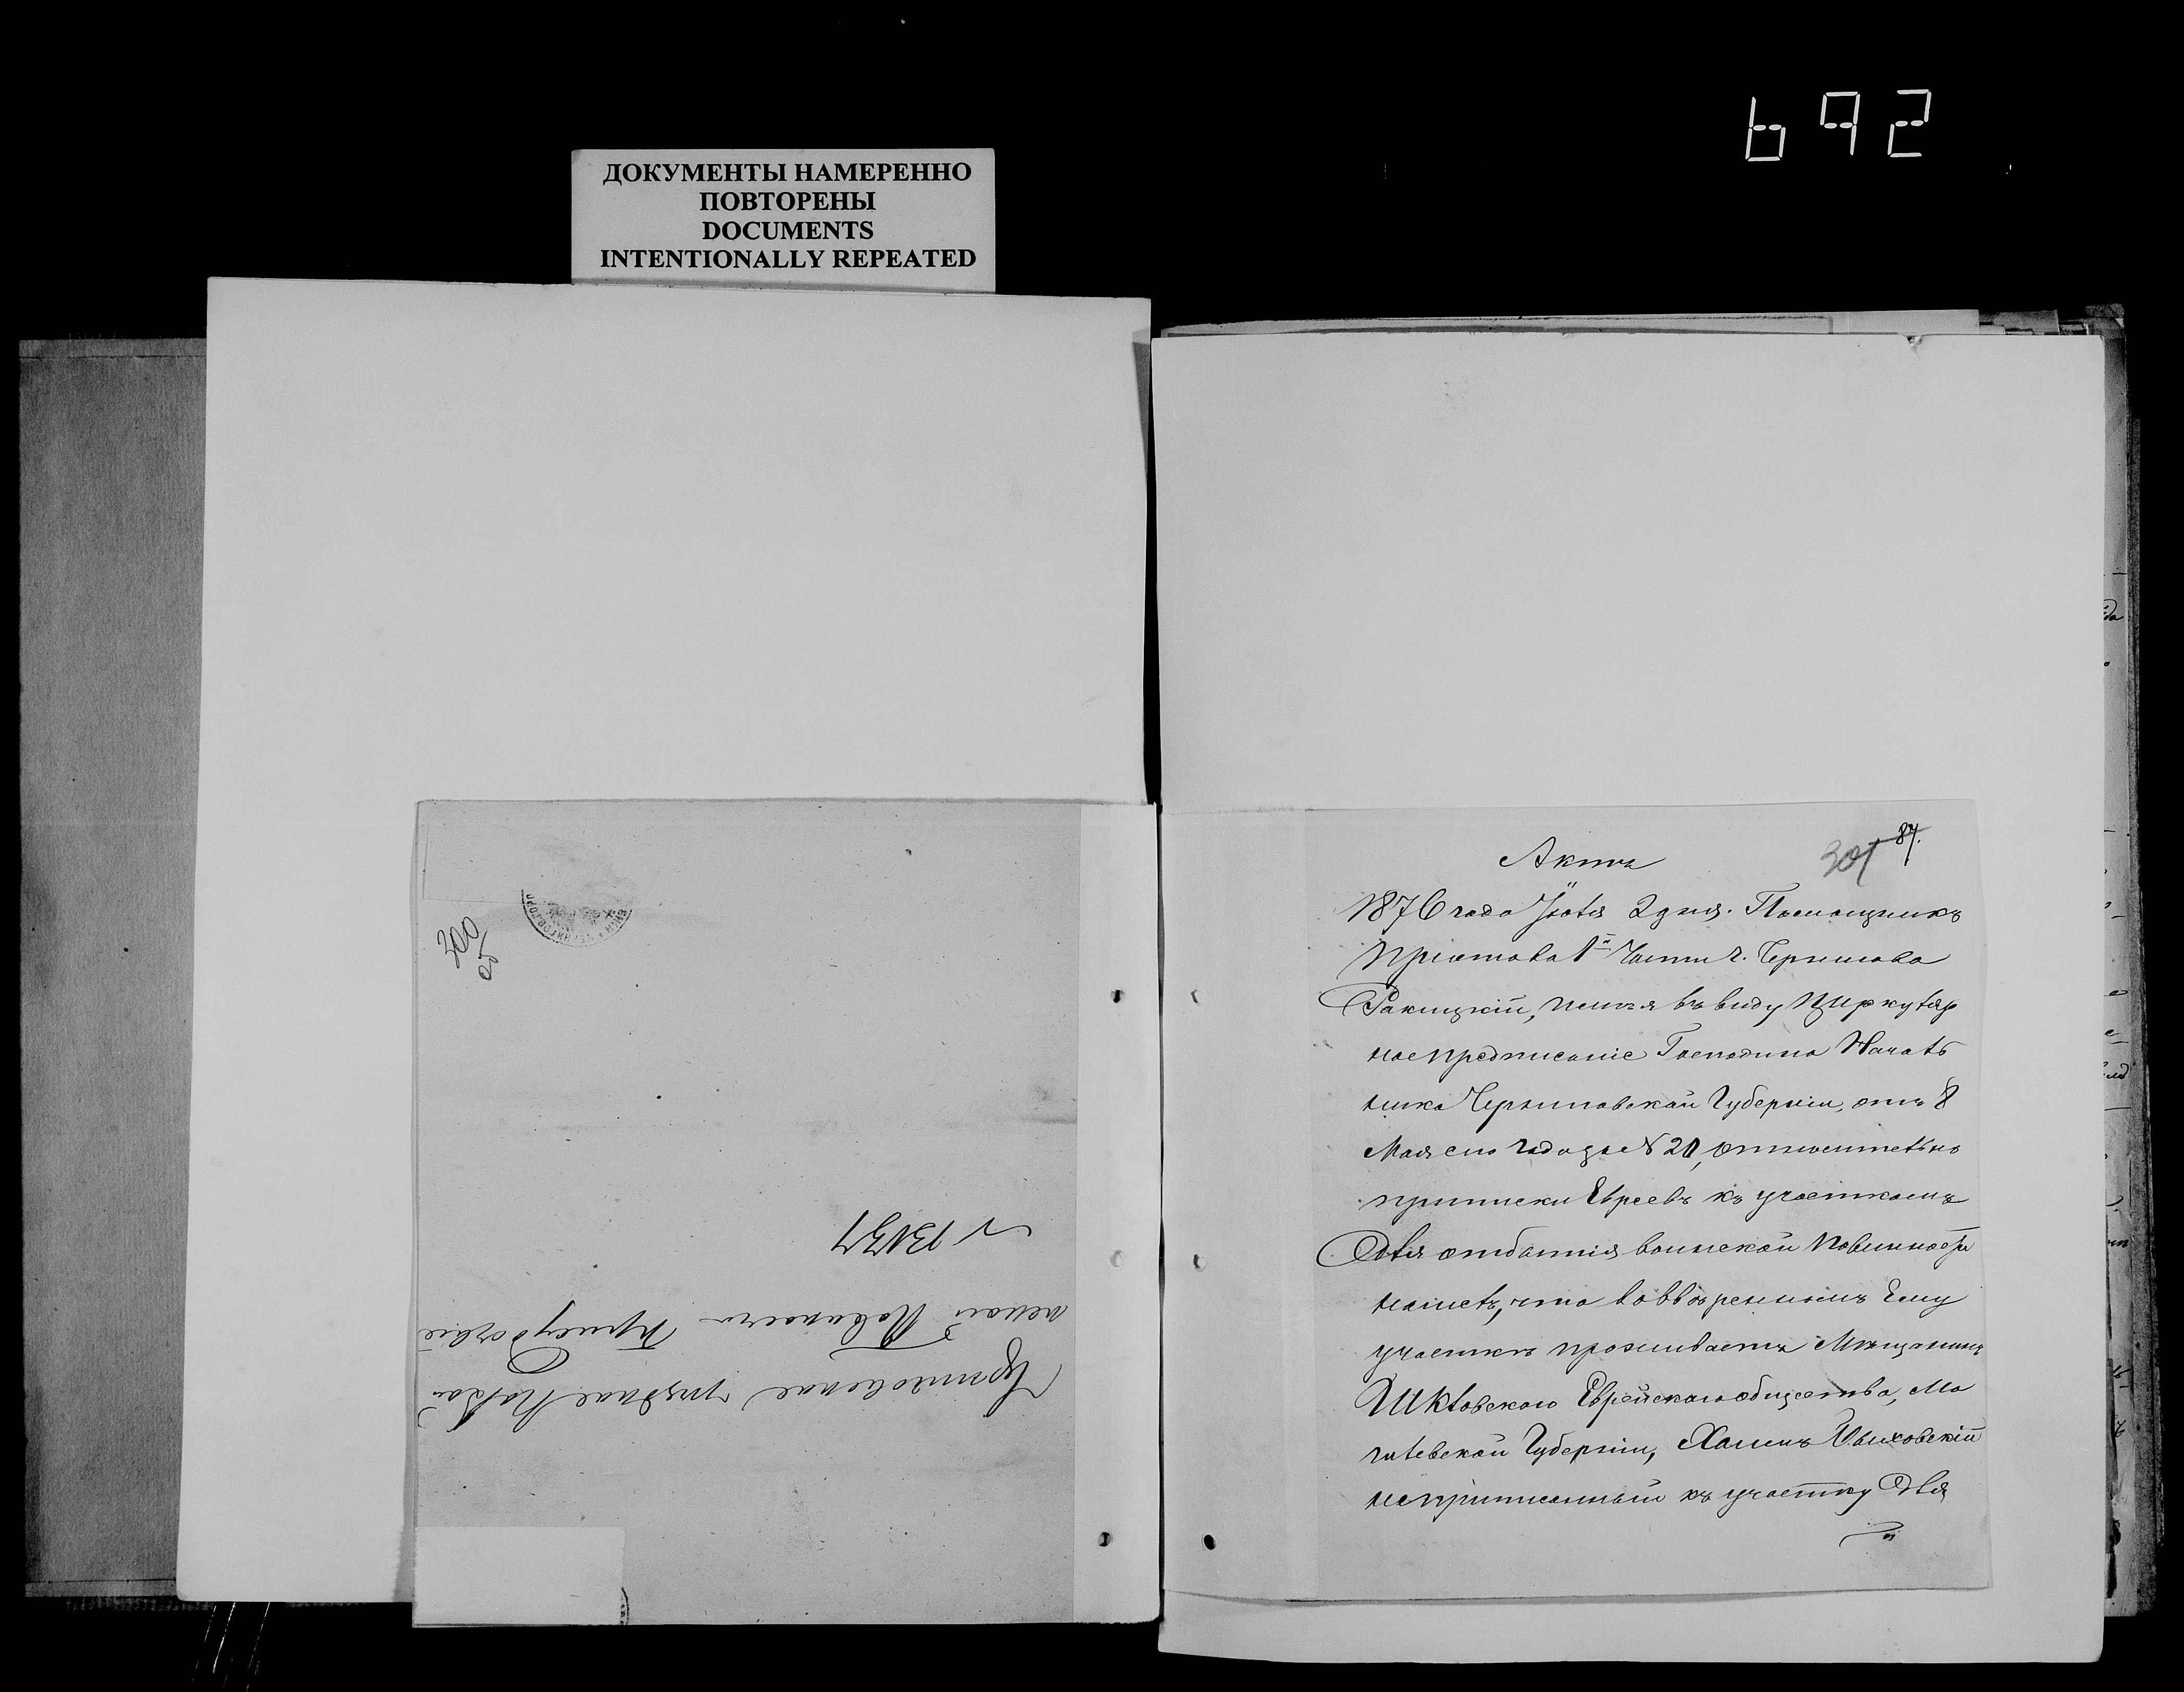 692
ДОКУМЕНТЫ НАМЕРЕННО
ПОВТОРЕНЫ
DOCUMENTS
INTENTIONALLY REPEATED
300
об
N 13137
Черниговское уѣздное По Воин
ской Повинности Присудствіе
87.
301
Актъ
1876 года Іюля 2 дня. Помощникъ
Пристава 1й Части г. Чернигова
Ракицкій, имѣя въ виду Циркуляр
ное предписаніе Господина Началь
ника Черниговской Губерніи, отъ 8
Мая сио года за N 20, относительно
приписки Евреевъ къ участкамъ
Для отбытія воинской Повинности
нашелъ, что во ввѣренномъ Ему
участкѣ проживаетъ Мѣщанинъ
Шкловскаго Еврейскаго общества, Мо
гилевской Губерніи, Хаимъ Быховскій
неприписанный къ участку Для